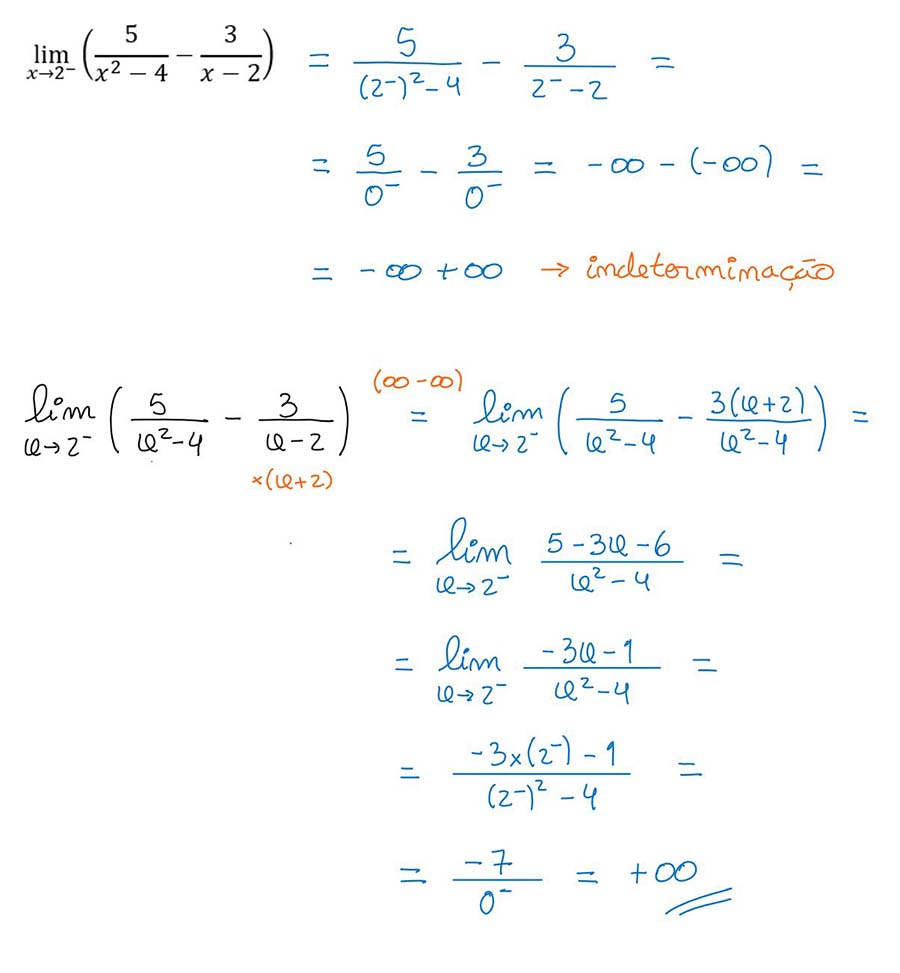 lim x→2⁻ (5/(x² − 4) − 3/(x − 2)) = 5/((2⁻)² − 4) − 3/(2⁻ − 2) =
= 5/0⁻ − 3/0⁻ = −∞ − (−∞) =
= −∞ + ∞ → indeterminação
lim x→2⁻ (5/(x² − 4) − 3/(x − 2)) ×(x+2) (∞ − ∞) = lim x→2⁻ (5/(x² − 4) − 3(x+2)/(x² − 4)) =
= lim x→2⁻ (5 − 3x − 6)/(x² − 4) =
= lim x→2⁻ (−3x − 1)/(x² − 4) =
= (−3×(2⁻) − 1)/((2⁻)² − 4) =
= −7/0⁻ = +∞